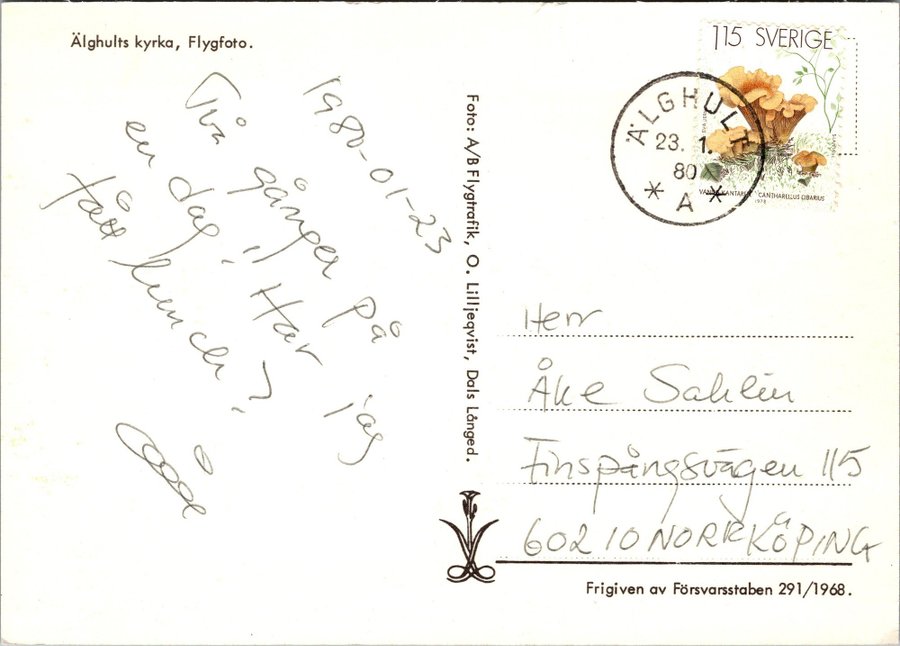 Älghults kyrka, Flygfoto.
1980-01-23
Två gånger på
en dag! Har jag
fått lunch?
Foto: A/B Flygtrafik, O. Lilljeqvist, Dals Långed.
115 SVERIGE
CANTHARELLUS CIBARIUS
1978
ÄLGHULT
23. 1.
80
* A *
Herr
Åke Sahlin
Finspångsvägen 115
60210 NORRKÖPING
Frigiven av Försvarsstaben 291/1968.